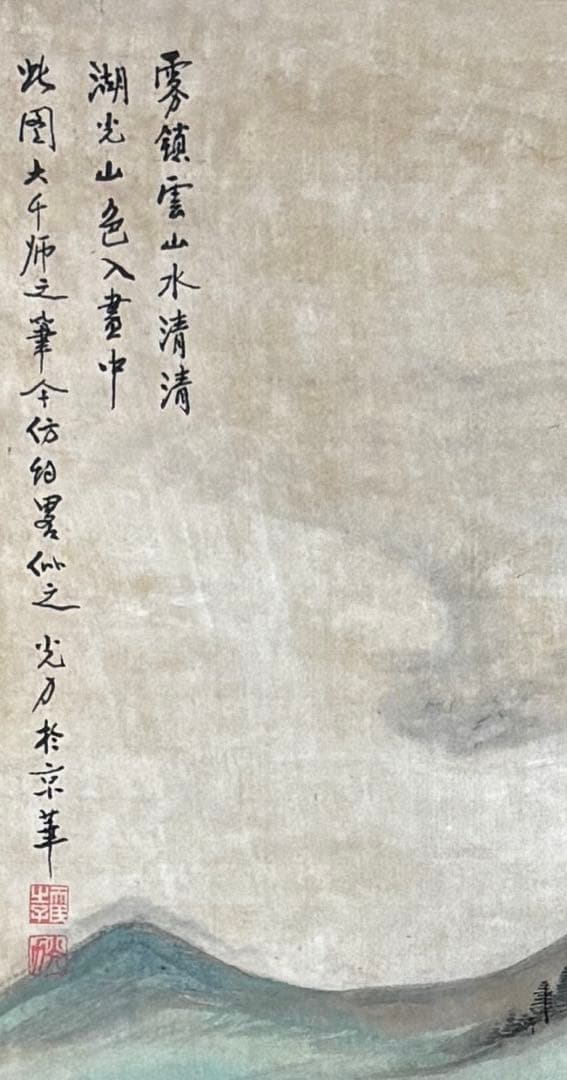 雾鎖雲山水清清
湖光山色入畫中
此图大千师之筆今仿约畧似之 光力於京華